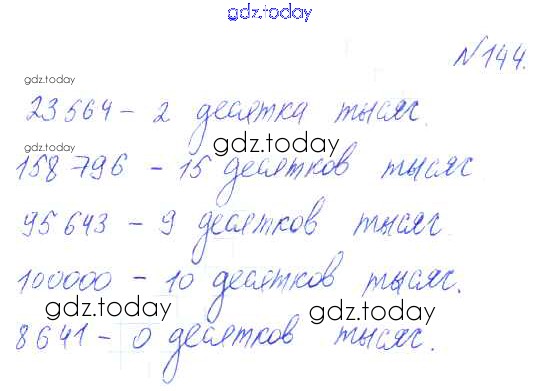 gdz.today
N144.
gdz.today
23564 - 2 десятка тысяч.
gdz.today
gdz.today
158 796 - 15 десятков тысяч.
95643 - 9 десятков тысяч.
100000 - 10 десятков тысяч.
gdz.today
gdz.today
8641 - 0 десятков тысяч.